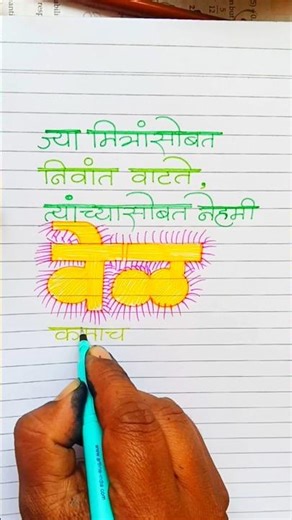 ज्या मित्रांसोबत
निवांत वाटते,
त्यांच्यासोबत नेहमी
वेळ